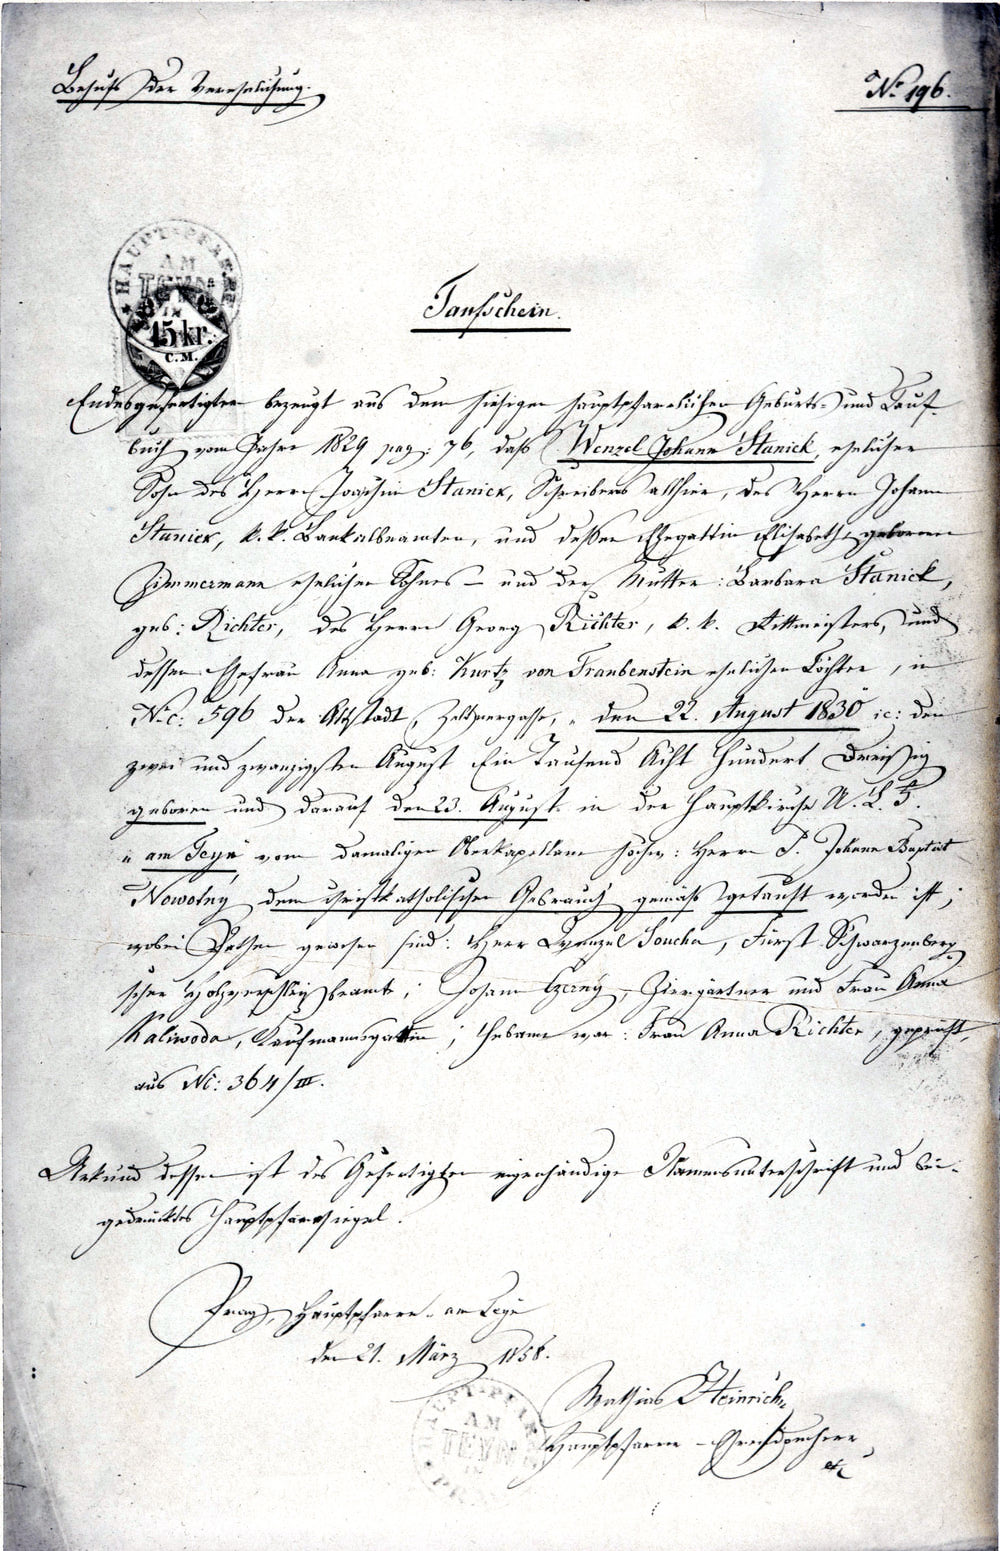 Behufs der Verehelichung.
No 196.
HAUPT-PFARRE
AM
TEYN
IN
15 kr.
C.M.
Taufschein.
Endesgefertigter bezeugt aus dem hiesigen hauptpfarrlichen Geburts- und Tauf
buch vom Jahre 1829 pag: 76, daß Wenzel Johann Stanick, ehelicher
Sohn des Herrn Joachim Stanick, Schreibers allhier, des Herrn Johann
Stanick, k. k. Bankalbeamten, und dessen Ehegattin Elisabeth, geborenen
Zimmermann ehelichen Sohnes – und der Mutter: Barbara Stanick,
geb: Richter, des Herrn Georg Richter, k. k. Rittmeisters, und
dessen Ehefrau Anna geb: Kurtz von Traubenstein ehelichen Tochter, in
N.c: 596 der Altstadt, Zeltnergasse, den 22. August 1830 ie: den
zwei und zwanzigsten August Ein Tausend Acht Hundert Dreißig
geboren und darauf den 23. August in der Hauptkirche U. L. F.
„am Teyn“ vom damaligen Oberkapellane hochw: Herrn P. Johann Baptist
Nowotný dem christkatholischen Gebrauch gemäß getauft worden ist;
wobei Pathen gewesen sind: Herr Wenzel Soucha, Fürst Schwarzenberg
scher Holzverschleißbeamte; Johann Czerný, Ziergärtner und Frau Anna
Kaliwoda, Kaufmannsgattin; Hebame war: Frau Anna Richter, geprüft,
aus Nc: 364/III.
Urkund dessen ist des Gefertigten eigenhändige Namensunterschrift und bei-
gedrucktes Hauptpfarrsiegel.
Prag, Hauptpfarre am Teyn
den 21. März 1858.
Mathias Heinrich
Hauptpfarrer – Ehrendomherr
etz
HAUPT-PFARRE
AM
TEYN
IN